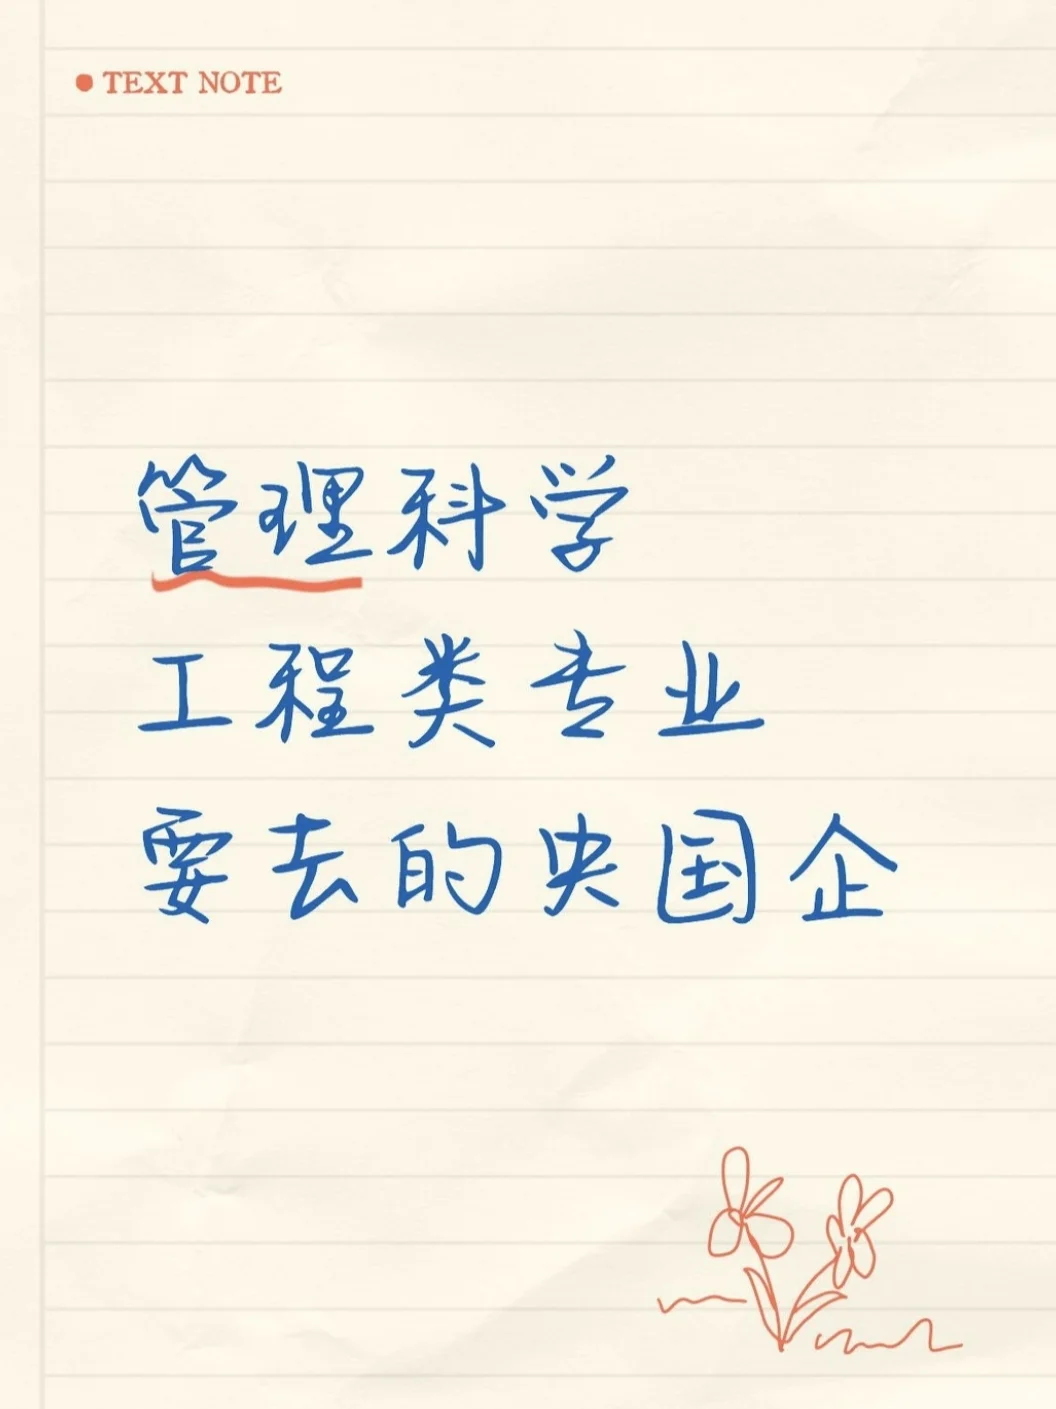 TEXT NOTE
管理科学
工程类专业
要去的央国企